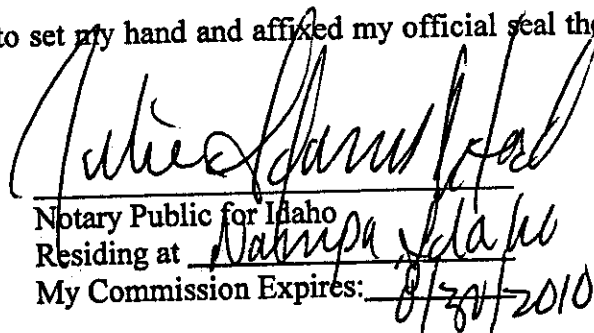 to set my hand and affixed my official seal the
Julie
Notary Public for Idaho
Residing at Nampa, Idaho
My Commission Expires: 8/30/2010